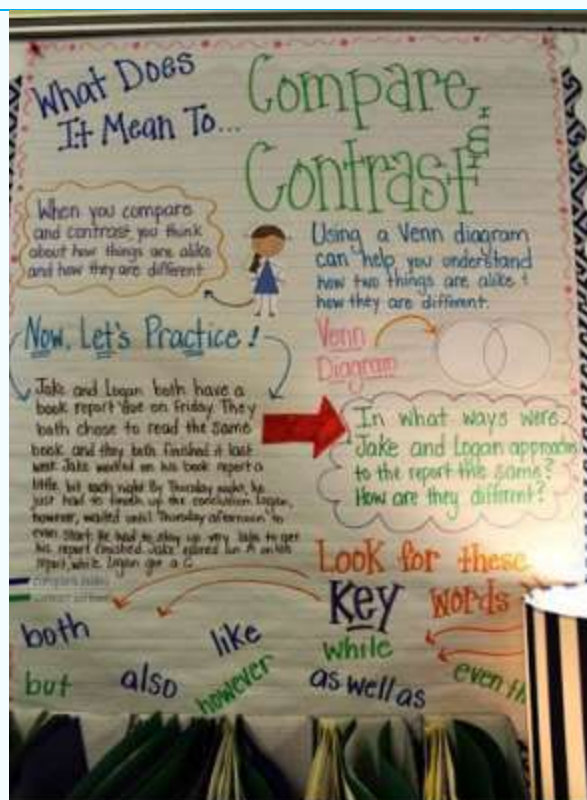 What Does
It Mean To...
Compare
&
Contrast
When you compare
and contrast you think
about how things are alike
and how they are different
Using a Venn diagram
can help you understand
how two things are alike &
how they are different.
Now, Let's Practice!
Venn
Diagram
Jake and Logan both have a
book report due on Friday. They
both chose to read the same
book and they both finished it last
week. Jake worked on his book report a
little bit each night. By Thursday night, he
just had to finish up the conclusion. Logan,
however, waited until Thursday afternoon to
even start. He had to stay up very late to get
his report finished. Jake earned an A on his
report, while Logan got a C.
In what ways were
Jake and Logan
to the report the same?
How are they different?
Look for these
Key words
both
like
while
but
also
however
as well as
even